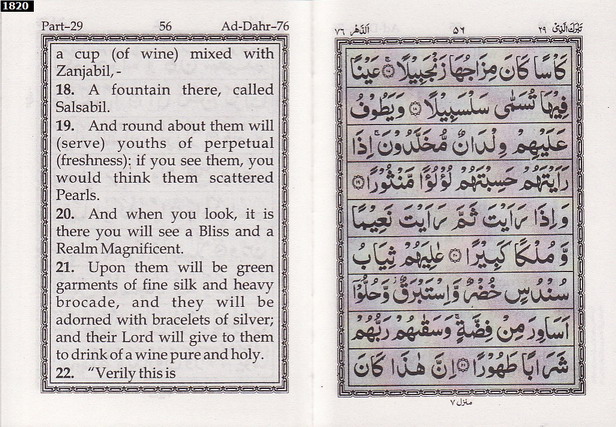 1820
Part-29 56 Ad-Dahr-76
a cup (of wine) mixed with
Zanjabil,-
18. A fountain there, called
Salsabil.
19. And round about them will
(serve) youths of perpetual
(freshness): if you see them, you
would think them scattered
Pearls.
20. And when you look, it is
there you will see a Bliss and a
Realm Magnificent.
21. Upon them will be green
garments of fine silk and heavy
brocade, and they will be
adorned with bracelets of silver;
and their Lord will give to them
to drink of a wine pure and holy.
22. “Verily this is
تبٰرك الذي ٢٩ ٥٦ الدّهر ٧٦
كَاْسًا كَانَ مِزَاجُهَا زَنْجَبِيْلًا ۝١٧ عَيْنًا
فِيْهَا تُسَمّٰى سَلْسَبِيْلًا ۝١٨ وَيَطُوْفُ
عَلَيْهِمْ وِلْدَانٌ مُّخَلَّدُوْنَ ۚ اِذَا
رَاَيْتَهُمْ حَسِبْتَهُمْ لُؤْلُؤًا مَّنْثُوْرًا ۝١٩
وَاِذَا رَاَيْتَ ثَمَّ رَاَيْتَ نَعِيْمًا
وَّمُلْكًا كَبِيْرًا ۝٢٠ عٰلِيَهُمْ ثِيَابُ
سُنْدُسٍ خُضْرٌ وَّاِسْتَبْرَقٌ ۡ وَّحُلُّوْۤا
اَسَاوِرَ مِنْ فِضَّةٍ ۚ وَسَقٰىهُمْ رَبُّهُمْ
شَرَابًا طَهُوْرًا ۝٢١ اِنَّ هٰذَا كَانَ
منزل ٧